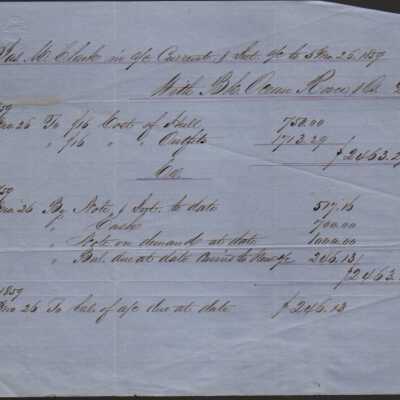 Jas M. Clark in a/c Current & Int. a/c to Nov 26. 1859
With Bk Ocean Rover & Co.
1859
Nov 26 To 1/16 Cost of Hull 750.00
" 1/16 " " Outfits 1713.29
$2463.29
Cr.
1859
Nov 26 By Note & Int. to date 517.16
" Cash 700.00
" Note on demand at date 1000.00
" Bal. due at date Carried to New a/c 246.13
$2463.
1859
Nov 26 To bal. of a/c due at date $246.13